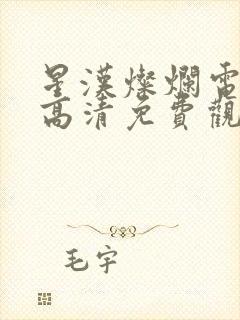 星漢燦爛電
高清免費觀
毛宇